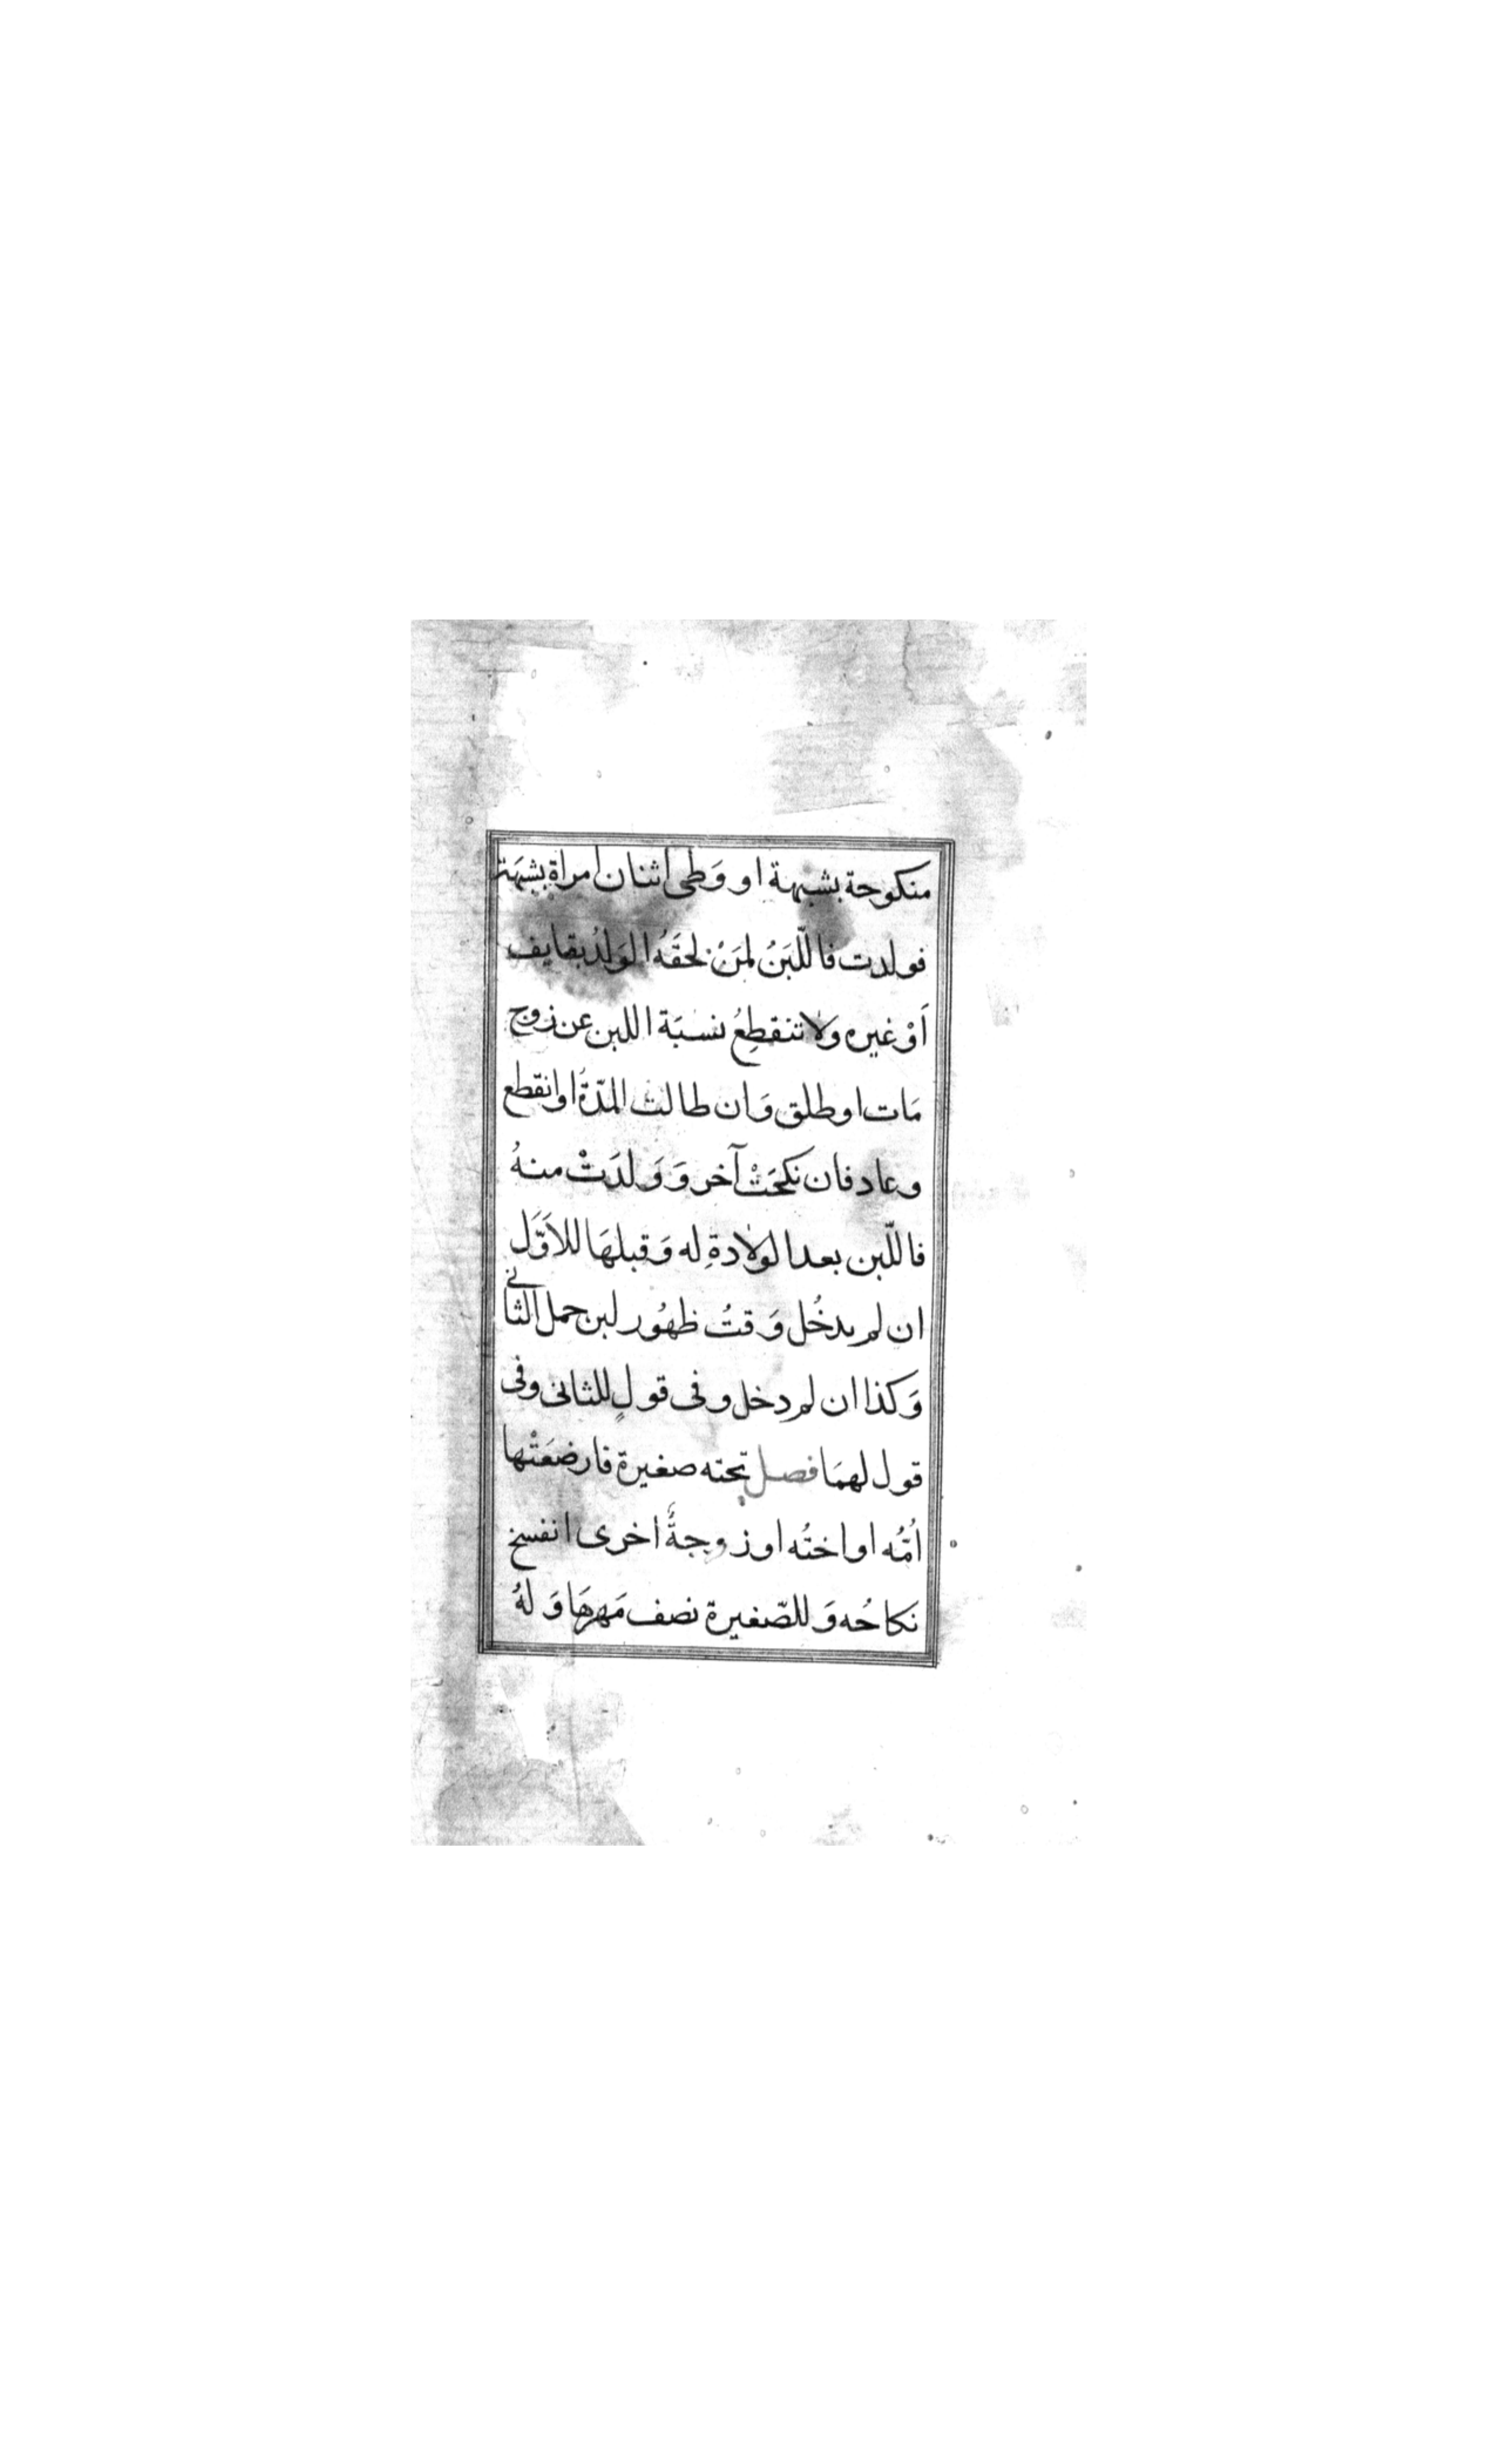 منكوحة بشبهة او وَطى اثنان امراة بشبهة
فولدت فاللّبَنُ لمَنْ لحقَهُ الوَلدُ بقايف
اَوْ غيره ولا تنقطِعُ نسبَة اللبن عن زوج
مَات او طلق وَان طالت المدّةُ او انقطع
وعاد فان نكحَتْ آخر وَ وَلدَتْ منهُ
فاللّبن بعد الولادةِ له وَقبلهَا للاَوَّل
ان لم يدخُل وَقتُ ظهُور لبن حمل الثاني
وَكذا ان لم دخل وفى قولٍ للثانى وفى
قول لهمَا فصل تحته صغيرة فارضعَتْها
اُمّه او اختُه او زوجةٌ اخرى انفسخ
نكاحُه وَللصّغيرة نصف مَهرهَا وَلهُ